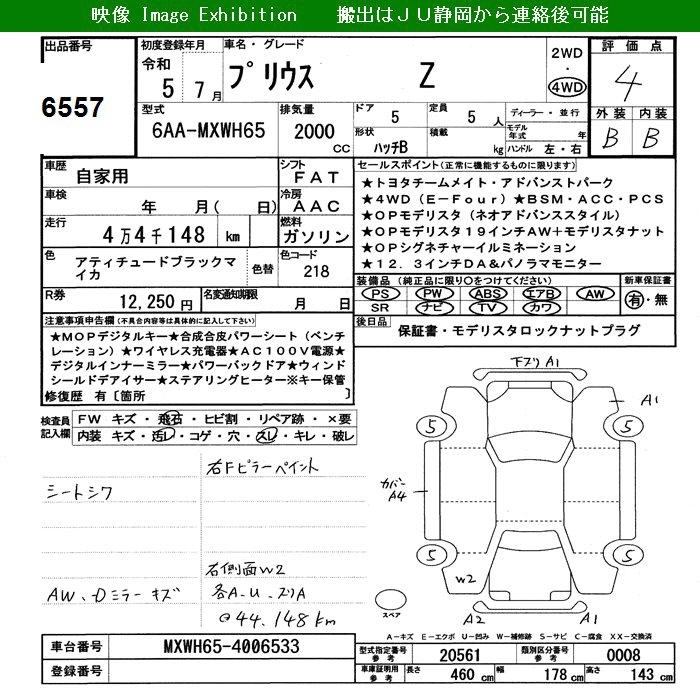 映像 Image Exhibition 搬出はＪＵ静岡から連絡後可能
出品番号
6557
初度登録年月
令和
5 7月
車名・グレード
プリウス Z
2WD
・
4WD
評価点
4
外装 内装
B B
型式
6AA-MXWH65
排気量
2000 CC
ドア 5
定員 5 人
形状 ハッチB
積載 kg
ディーラー・並行
モデル年式 年
ハンドル 左・右
車歴 自家用
シフト FAT
車検 年 月( 日)
冷房 AAC
走行 4万4千148 km
燃料 ガソリン
色 アティチュードブラックマイカ
色替
色コード 218
R券 12,250円
名変通知期限 月 日
セールスポイント(正常に機能するものに限ります)
★トヨタチームメイト・アドバンストパーク
★4WD（E－Four）★BSM・ACC・PCS
★OPモデリスタ（ネオアドバンススタイル）
★OPモデリスタ19インチAW＋モデリスタナット
★OPシグネチャーイルミネーション
★12．3インチDA&パノラマモニター
装備品 (純正品に限り〇をつけてください)
PS PW ABS エアB AW
SR ナビ TV カワ
新車保証書
有・無
後日品 保証書・モデリスタロックナットプラグ
注意事項申告欄 (不具合内容等は具体的に記入して下さい)
★MOPデジタルキー★合成合皮パワーシート（ベンチ
レーション）★ワイヤレス充電器★AC100V電源★
デジタルインナーミラー★パワーバックドア★ウィンド
シールドデアイサー★ステアリングヒーター※キー保管
修復歴 有〔箇所 〕
検査員記入欄
FW キズ・飛石・ヒビ割・リペア跡・×要
内装 キズ・汚レ・コゲ・穴・スレ・キレ・破レ
右Fピラーペイント
シートシワ
右側面W2
AW、Dミラーキズ
各A-U、ズリA
@44,148km
下ズリA1
A1
5 5
カバーA4
5 5
W2
A2 A1
スペア
A－キズ E－エクボ U－凹み W－補修跡 S－サビ C－腐食 XX－交換済
車台番号 MXWH65-4006533
登録番号
型式指定番号 参考 20561
類別区分番号 参考 0008
車庫証明用 参考 長さ 460 cm 幅 178 cm 高さ 143 cm